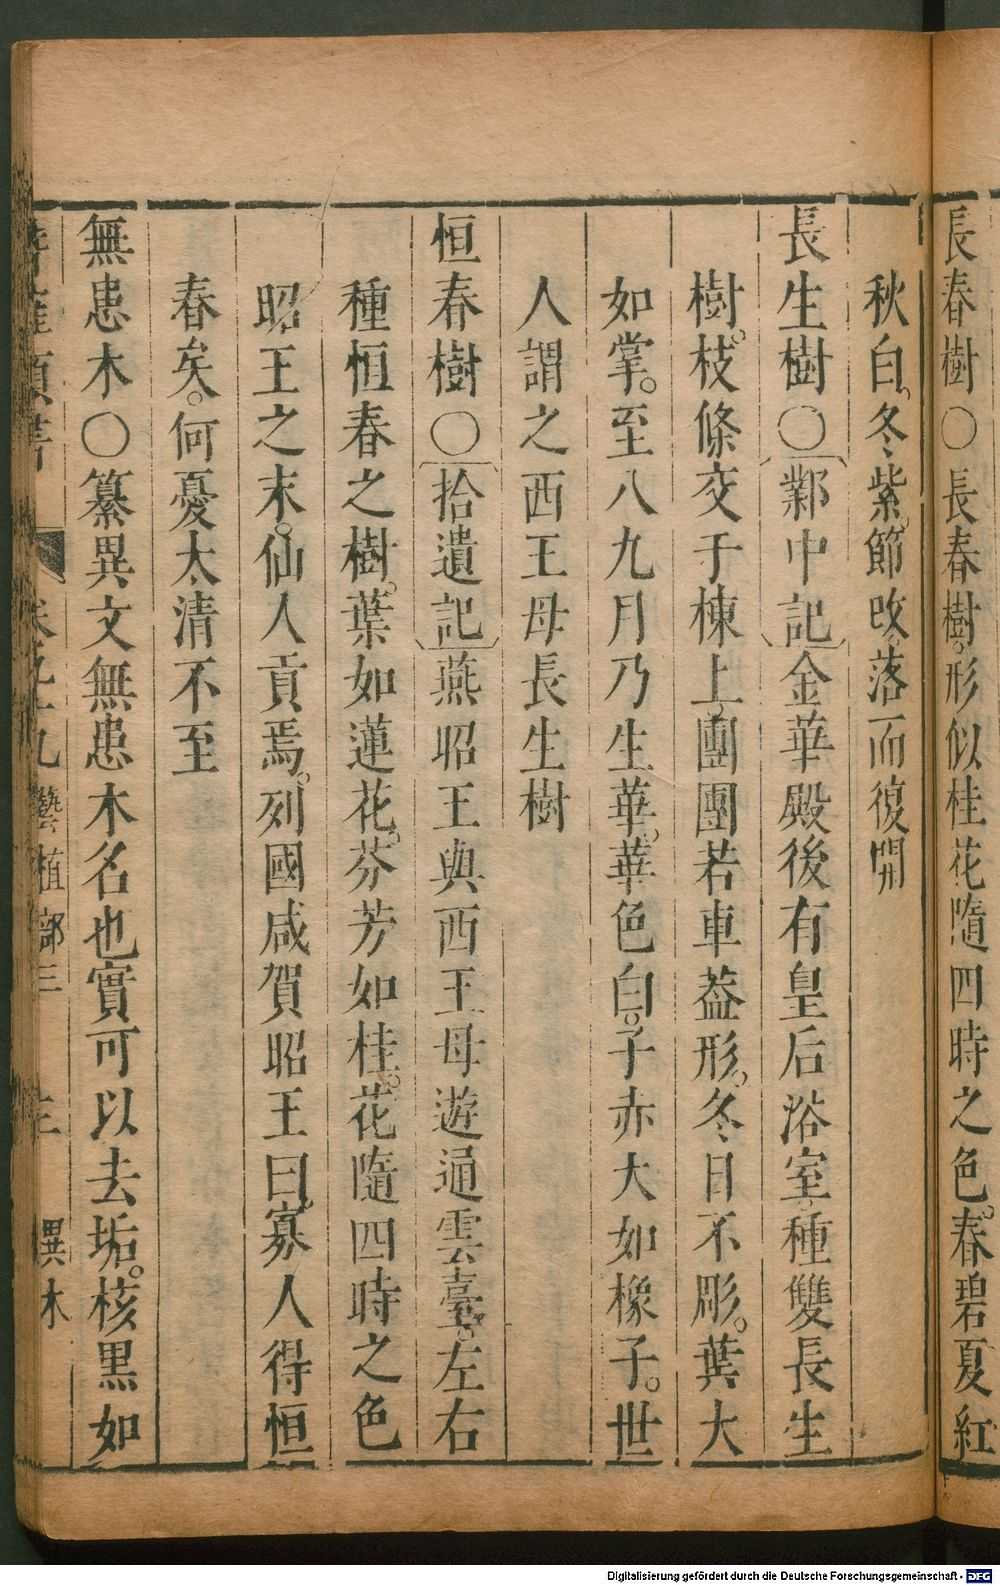 長春樹○長春樹形似桂花隨四時之色春碧夏紅
秋白冬紫節改落而復開
長生樹○鄴中記金華殿後有皇后浴室種雙長生
樹枝條交于棟上團團若車蓋形冬日不彫葉大
如掌至八九月乃生華華色白子赤大如橡子世
人謂之西王母長生樹
恒春樹○拾遺記燕昭王與西王母遊通雲臺左右
種恒春之樹葉如蓮花芬芳如桂花隨四時之色
昭王之末仙人貢焉列國咸賀昭王曰寡人得恒
春矣何憂太清不至
無患木○纂異文無患木名也實可以去垢核黑如
類書 卷九十九 藝植部三 異木
Digitalisierung gefördert durch die Deutsche Forschungsgemeinschaft - DFG